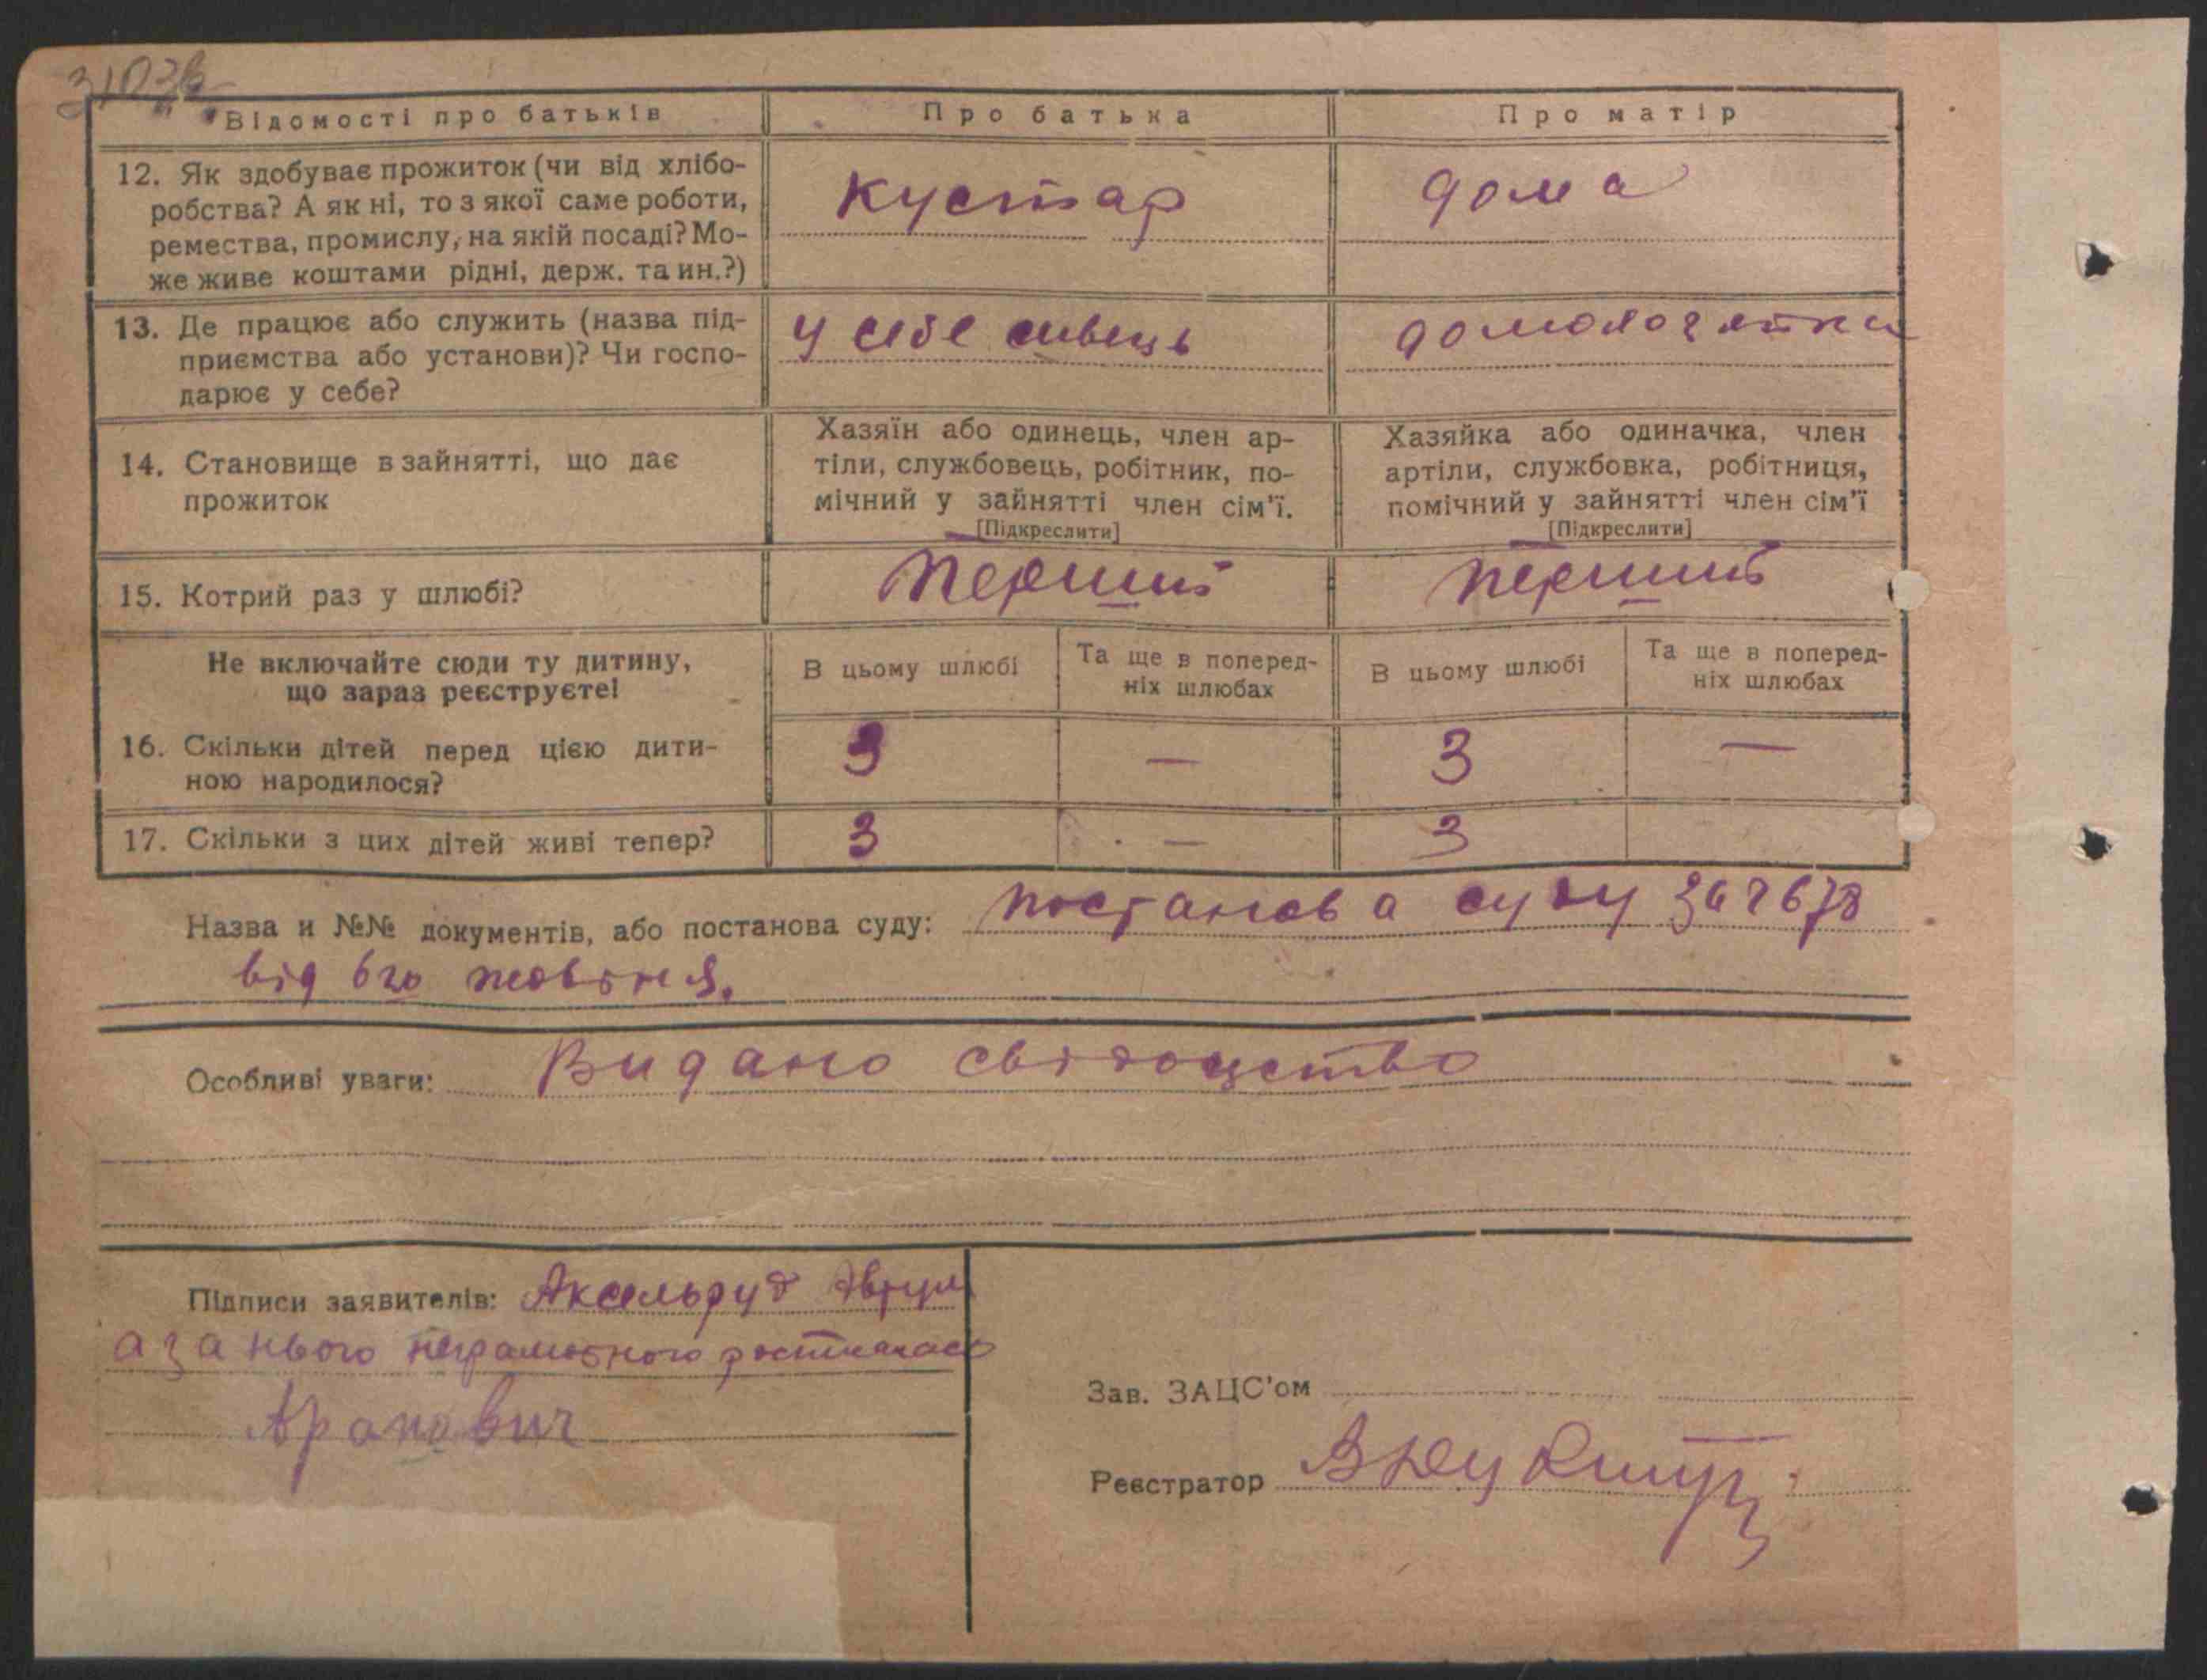 Відомості про батьків
Про батька
Про матір
12. Як здобуває прожиток (чи від хлібо-
робства? А як ні, то з якої саме роботи,
ремества, промислу, на якій посаді? Мо-
же живе коштами рідні, держ. та ин.?)
кустар
дома
13. Де працює або служить (назва під-
приємства або установи)? Чи госпо-
дарює у себе?
у себе швець
14. Становище в зайнятті, що дає
прожиток
Хазяїн або одинець, член ар-
тіли, службовець, робітник, по-
мічний у зайнятті член сім'ї.
[Підкреслити]
Хазяйка або одиначка, член
артіли, службовка, робітниця,
помічний у зайнятті член сім'ї
[Підкреслити]
15. Котрий раз у шлюбі?
перший
перший
Не включайте сюди ту дитину,
що зараз реєструєте!
В цьому шлюбі
Та ще в поперед-
ніх шлюбах
В цьому шлюбі
Та ще в поперед-
ніх шлюбах
16. Скільки дітей перед цією дити-
ною народилося?
3
—
3
—
17. Скільки з цих дітей живі тепер?
3
—
3
Назва и №№ документів, або постанова суду: постанова суду
від 6го жовтня.
Особливі уваги: Видано свідоцтво
Підписи заявителів: Аксельруд
а за нього неграмотного
Арапович
Зав. ЗАЦС'ом
Реєстратор